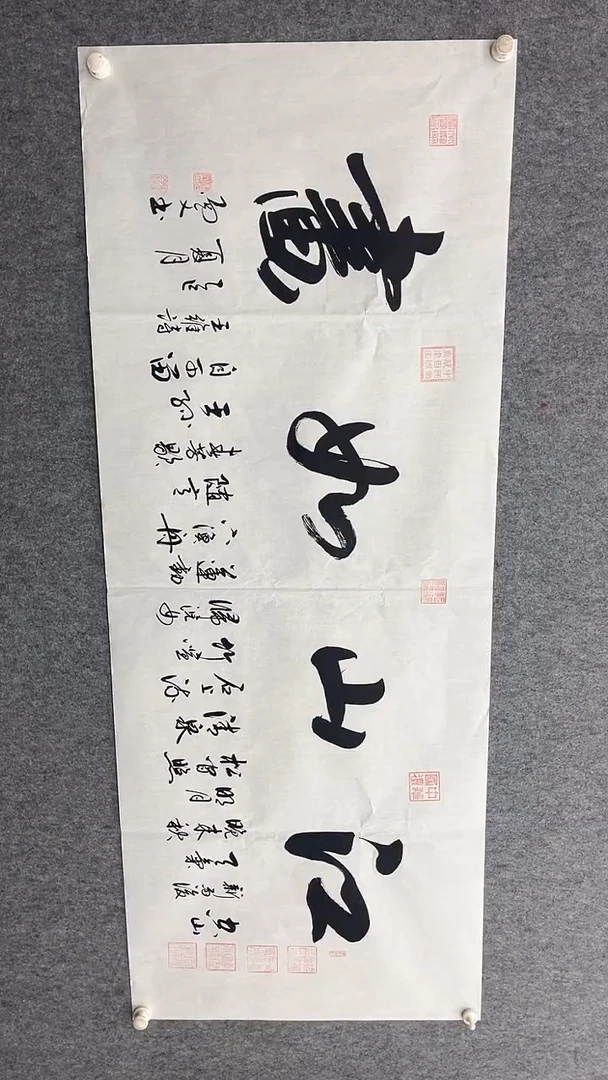 江山如畫
空山
新雨後
天氣
晚來秋
明月
松間照
清泉
石上流
竹喧
歸浣女
蓮動
下漁舟
隨意
春芳歇
王孫
自可留
王維詩
乙巳
夏月
書